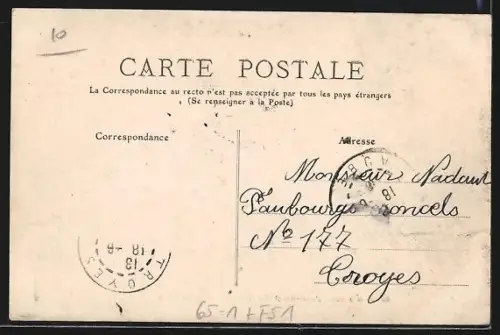 10
CARTE POSTALE
La Correspondance au recto n'est pas acceptée par tous les pays étrangers
(Se renseigner à la Poste)
Correspondance
Adresse
Monsieur Nadaut
Faubourg Croncels
No 177
Troyes
TROYES
13
18 -6
65-1 + FS1